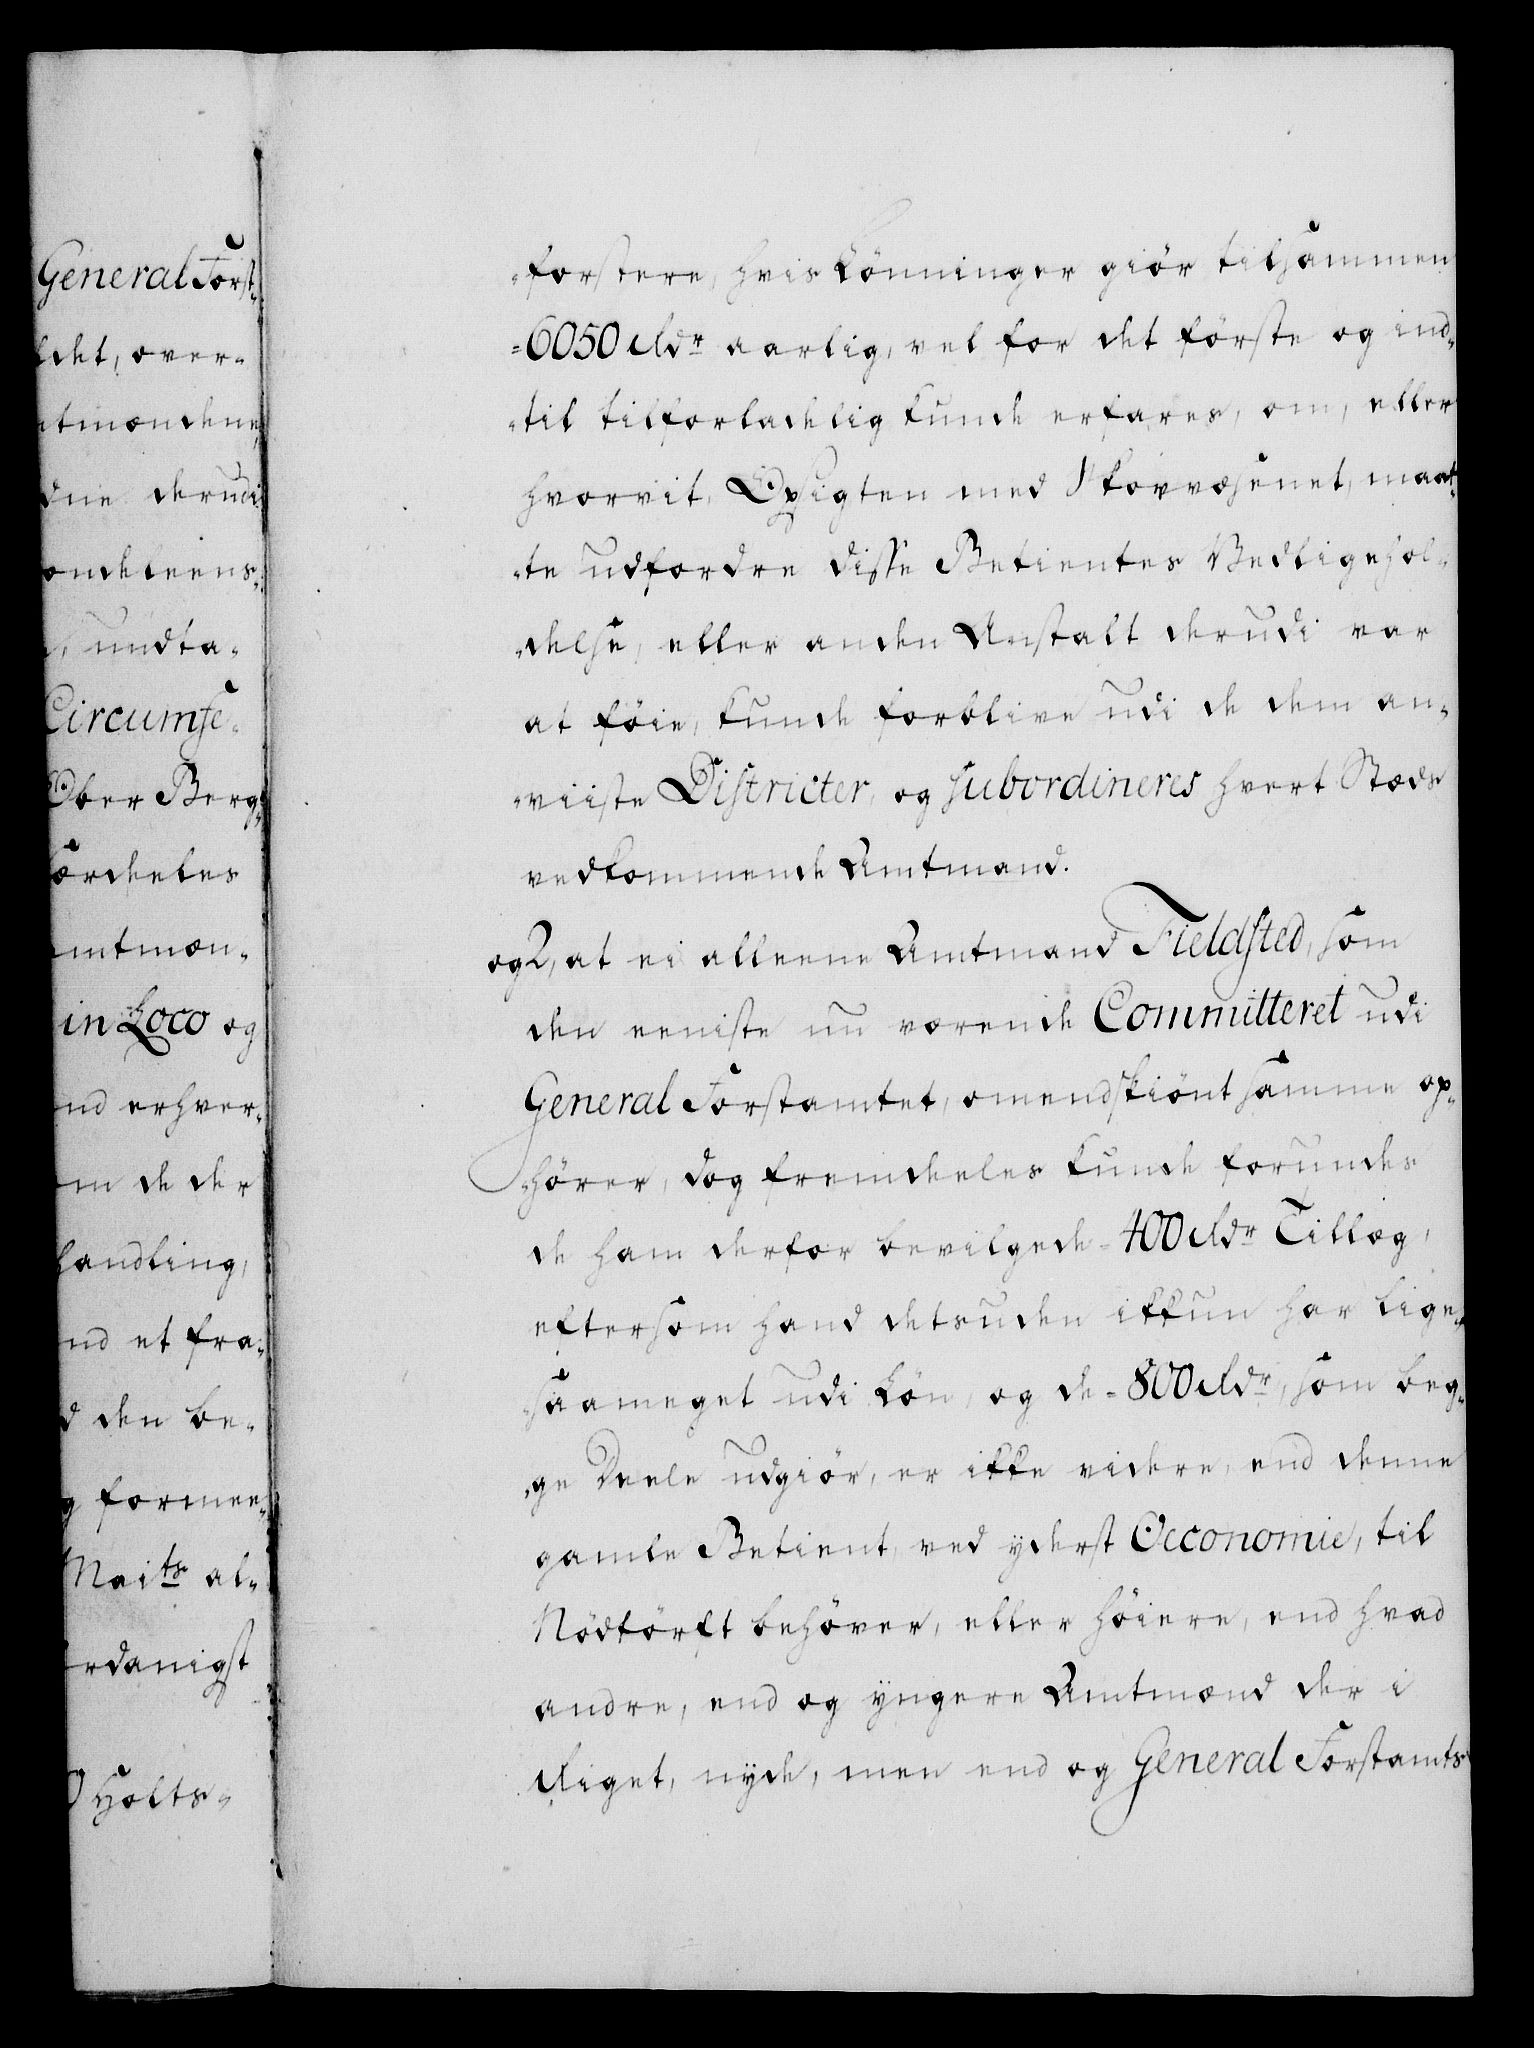 General Forst-
ldet, over-
tmændene,
dne derudi
ondeleens-
, undta-
Circumfe-
Ober Berg-
særdeeles
mtmæn-
in Loco og
nd erhver-
m de der
handling,
nd et fra-
d den be-
g formee-
Maits al-
rdanigst
Holts-
-forstere, hvis Lönninger giör tilsammen
-6050 Rdr aarlig, vel for det förste og ind-
-til tilforladelig kunde erfares, om, eller
hvorvit, Opsigten med Skovvæsenet, maat-
-te udfordre disse Betientes Vedligehol-
-delse, eller anden Anstalt derudi var
at föie, kunde forblive udi de dem an-
-viiste Districter, og subordineres hvert Stæds
vedkommende Amtmand.
og 2, at ei alleene Amtmand Fieldsted, som
den eeniste nu værende Committeret udi
General Forstamtet, omendskiönt samme op-
-hörer, dog fremdeeles kunde forundes
de ham derfor bevilgede - 400 Rdr Tillæg,
eftersom hand detsuden ikkun har lige-
-saameget udi Lön, og de - 800 Rdr, som beg-
-ge Deele udgiör, er ikke videre, end denne
gamle Betient, ved yderst Oeconomie, til
Nödtörft behöver, eller höiere, end hvad
andre, end og yngere Amtmænd der i
Riget, nyde, men end og General Forstamts